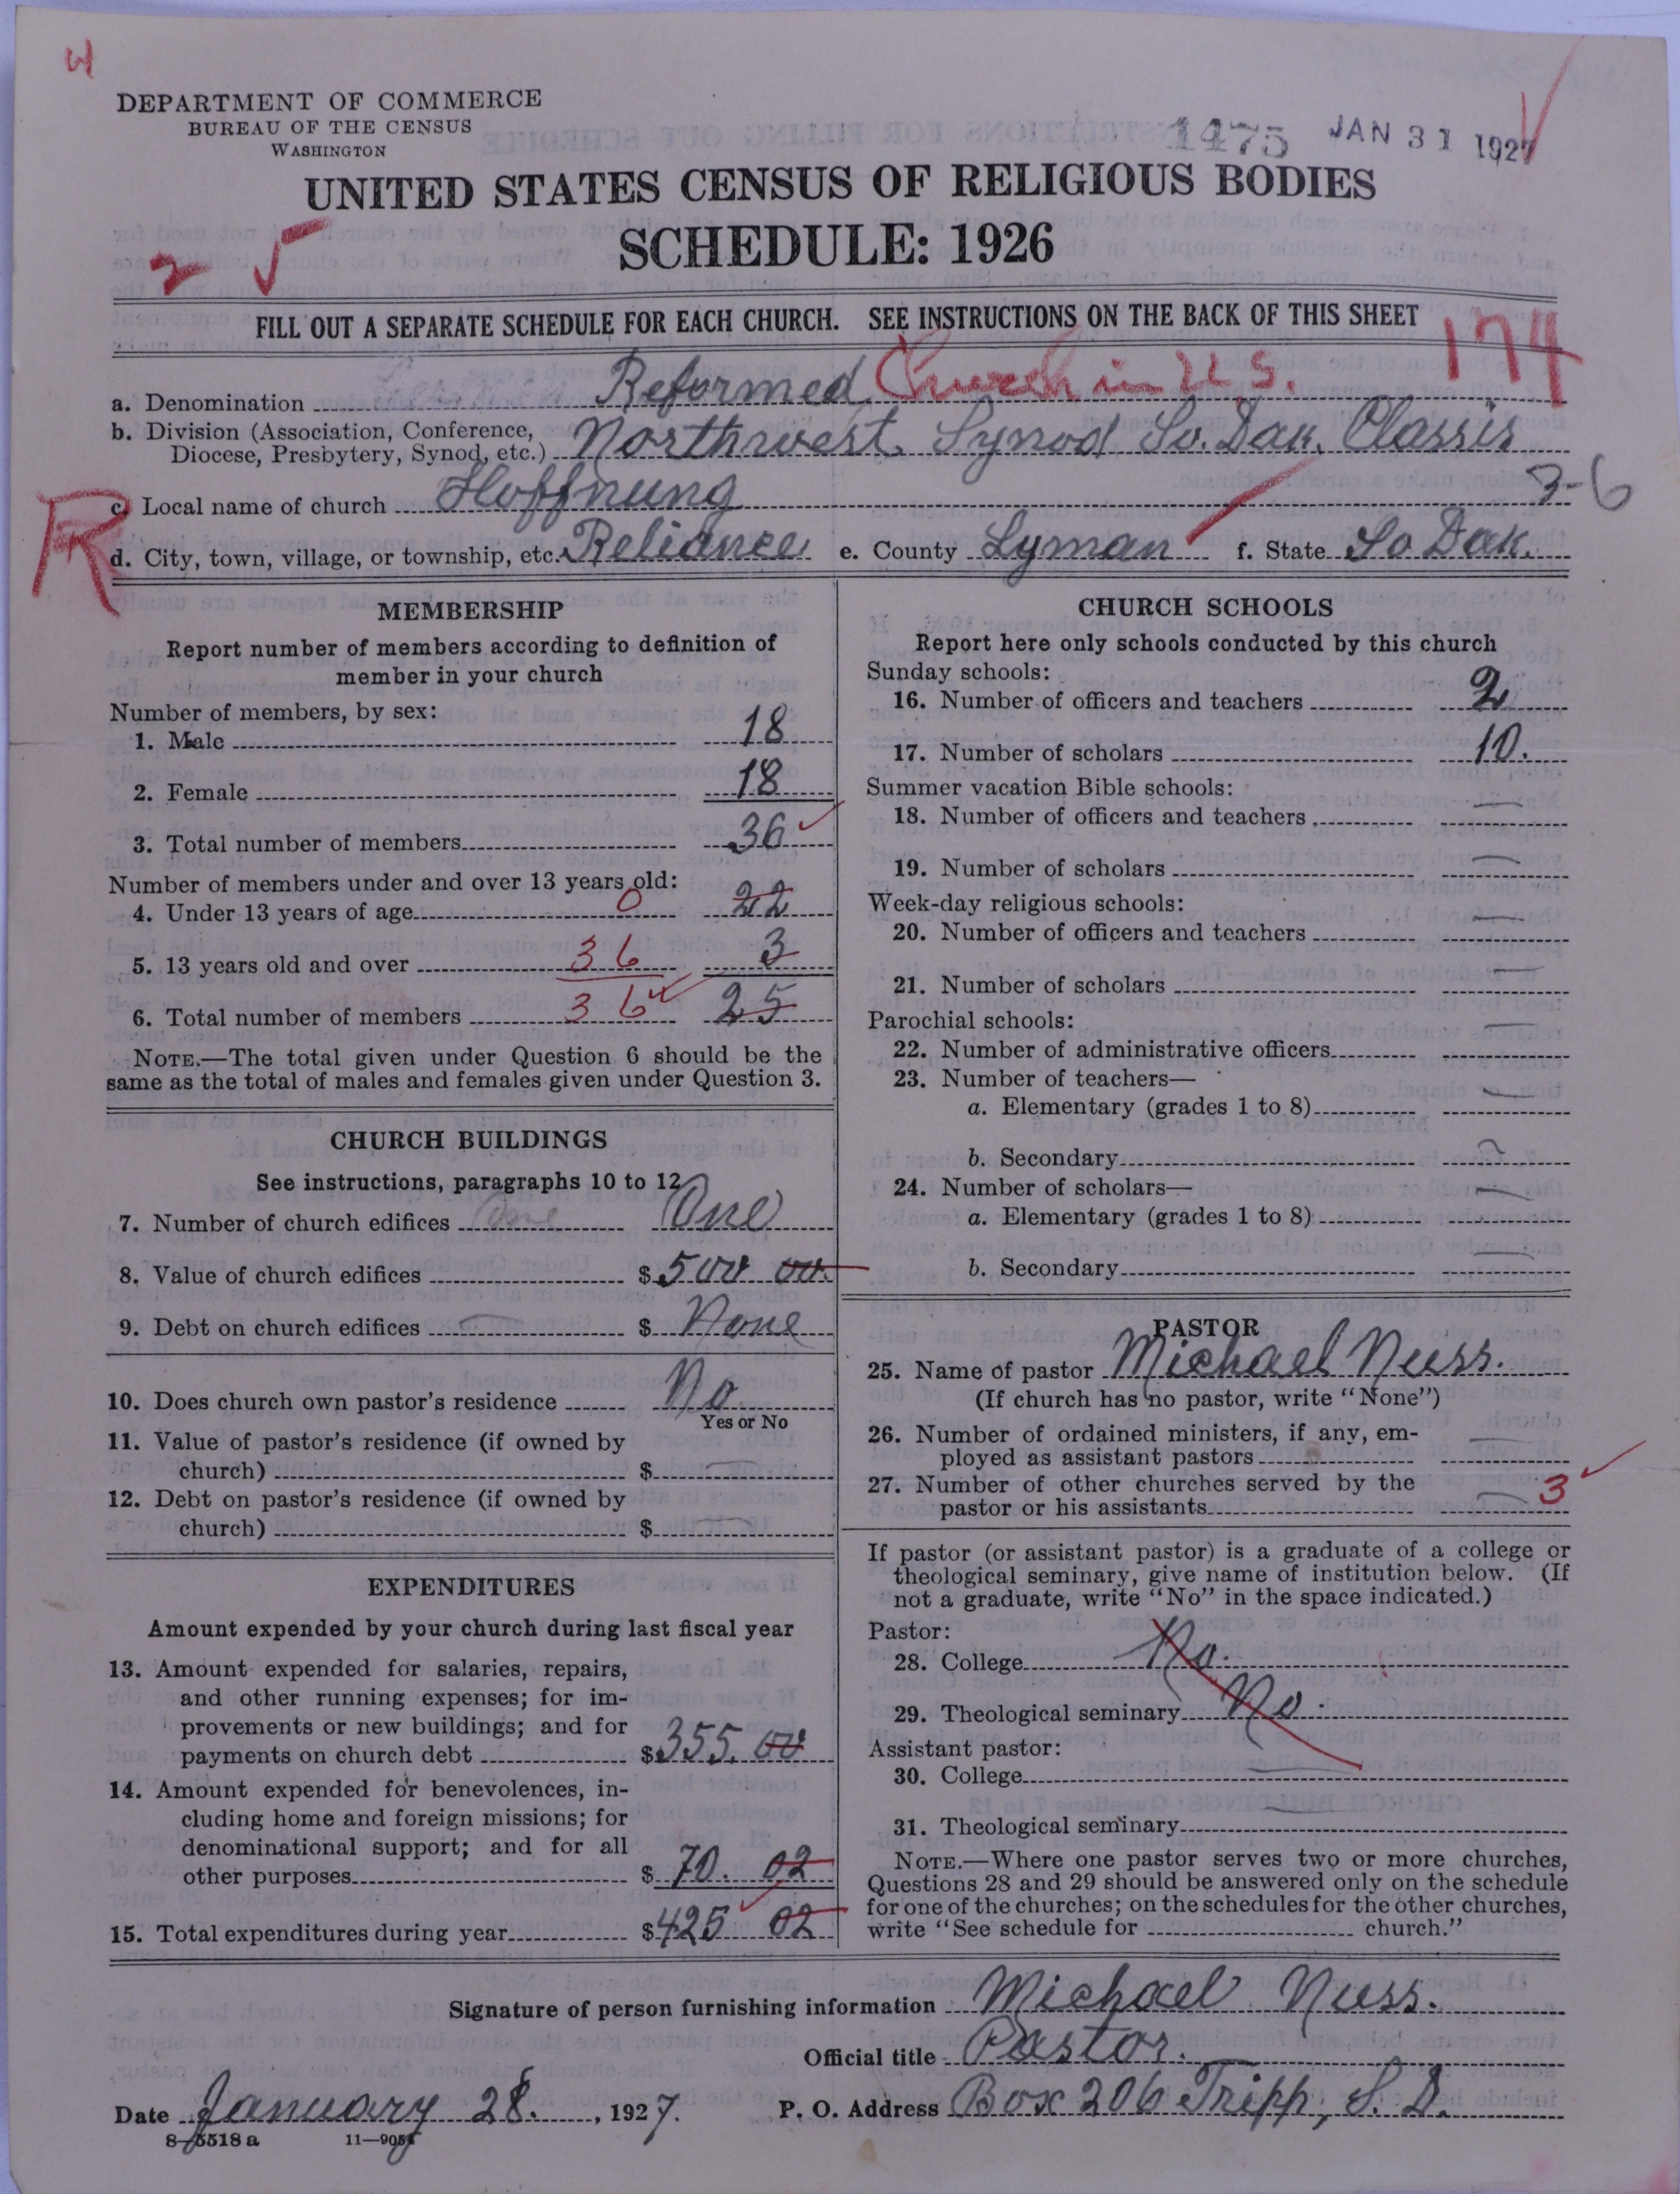 4
DEPARTMENT OF COMMERCE
BUREAU OF THE CENSUS
WASHINGTON
1475 JAN 31 1927
UNITED STATES CENSUS OF RELIGIOUS BODIES
SCHEDULE: 1926
2
FILL OUT A SEPARATE SCHEDULE FOR EACH CHURCH. SEE INSTRUCTIONS ON THE BACK OF THIS SHEET
174
a. Denomination Reformed Church in U.S.
b. Division (Association, Conference, Diocese, Presbytery, Synod, etc.) Northwest. Synod So. Dak. Classis
c. Local name of church Hoffnung 3-6
R
d. City, town, village, or township, etc. Reliance e. County Lyman f. State So Dak.
MEMBERSHIP
Report number of members according to definition of
member in your church
Number of members, by sex:
1. Male 18
2. Female 18
3. Total number of members 36
Number of members under and over 13 years old:
4. Under 13 years of age 0 22
5. 13 years old and over 36 3
6. Total number of members 36 25
NOTE.—The total given under Question 6 should be the
same as the total of males and females given under Question 3.
CHURCH BUILDINGS
See instructions, paragraphs 10 to 12
7. Number of church edifices One One
8. Value of church edifices $ 500 00.
9. Debt on church edifices — $ None
10. Does church own pastor's residence No
Yes or No
11. Value of pastor's residence (if owned by
church) $ —
12. Debt on pastor's residence (if owned by
church) $ —
EXPENDITURES
Amount expended by your church during last fiscal year
13. Amount expended for salaries, repairs,
and other running expenses; for im-
provements or new buildings; and for
payments on church debt $ 355. 00
14. Amount expended for benevolences, in-
cluding home and foreign missions; for
denominational support; and for all
other purposes $ 70. 02
15. Total expenditures during year $ 425 02
CHURCH SCHOOLS
Report here only schools conducted by this church
Sunday schools:
16. Number of officers and teachers 2
17. Number of scholars 10.
Summer vacation Bible schools:
18. Number of officers and teachers —
19. Number of scholars —
Week-day religious schools:
20. Number of officers and teachers —
21. Number of scholars —
Parochial schools:
22. Number of administrative officers —
23. Number of teachers—
a. Elementary (grades 1 to 8) —
b. Secondary —
24. Number of scholars—
a. Elementary (grades 1 to 8) —
b. Secondary —
PASTOR
25. Name of pastor Michael Nuss.
(If church has no pastor, write "None")
26. Number of ordained ministers, if any, em-
ployed as assistant pastors —
27. Number of other churches served by the
pastor or his assistants — 3
If pastor (or assistant pastor) is a graduate of a college or
theological seminary, give name of institution below. (If
not a graduate, write "No" in the space indicated.)
Pastor:
28. College No.
29. Theological seminary No.
Assistant pastor:
30. College —
31. Theological seminary —
NOTE.—Where one pastor serves two or more churches,
Questions 28 and 29 should be answered only on the schedule
for one of the churches; on the schedules for the other churches,
write "See schedule for church."
Signature of person furnishing information Michael Nuss.
Official title Pastor.
Date January 28. , 1927. P. O. Address Box 206 Tripp, S. D.
8—5518 a 11—9051